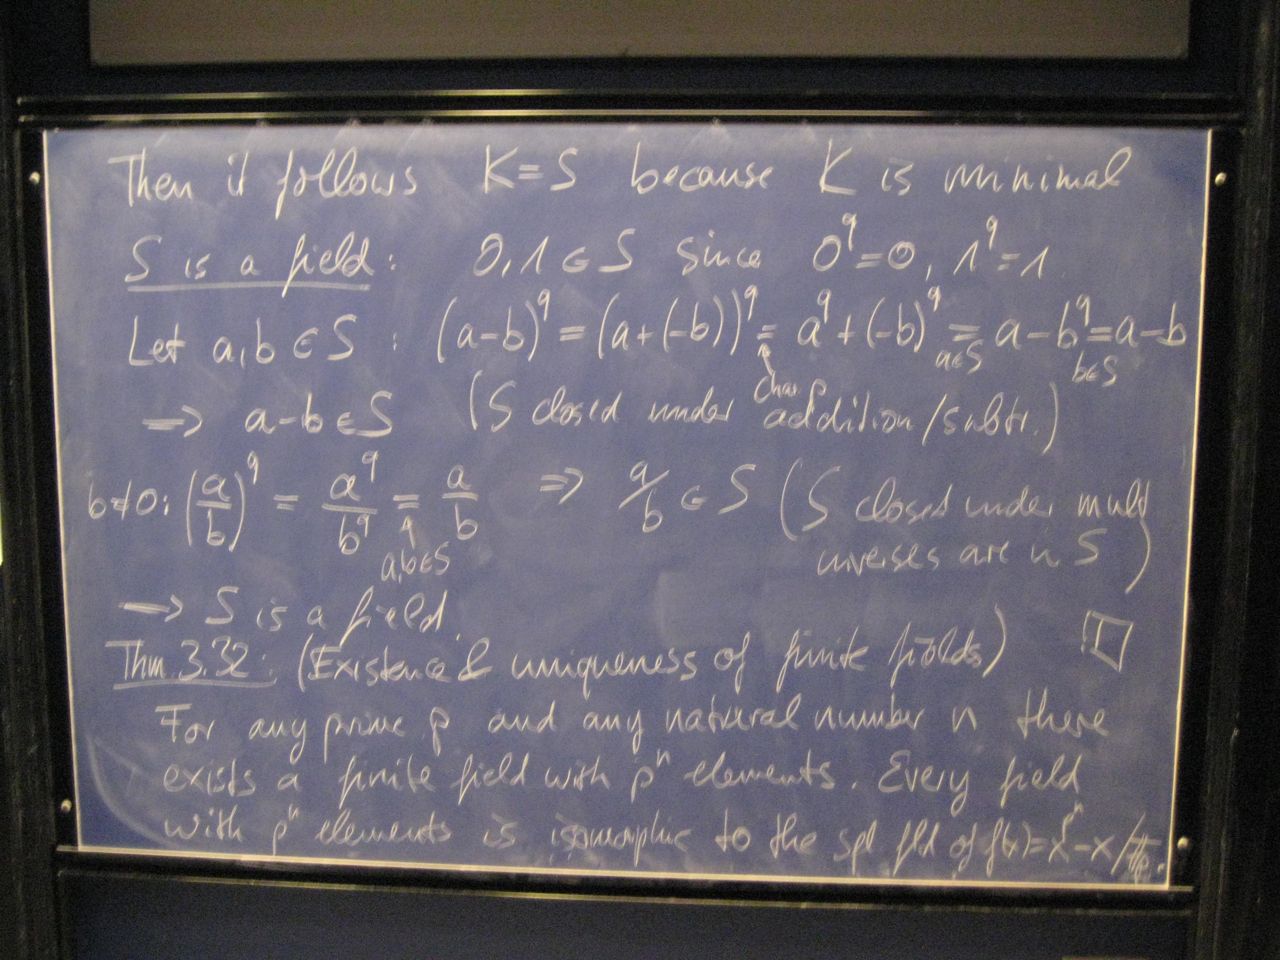 Then it follows K=S because K is minimal
S is a field: 0,1 ∈ S since 0^q=0, 1^q=1
Let a,b ∈ S : (a-b)^q = (a+(-b))^q = a^q+(-b)^q = a-b^q = a-b
char p a∈S b∈S
⟹ a-b ∈ S (S closed under addition/subtr.)
b≠0: (a/b)^q = a^q/b^q = a/b ⟹ a/b ∈ S (S closed under mult
a,b∈S inverses are in S)
⟹ S is a field.
Thm 3.32: (Existence & uniqueness of finite fields) □
For any prime p and any natural number n there
exists a finite field with p^n elements. Every field
with p^n elements is isomorphic to the spl fld of f(x)=x^p^n-x/𝔽p.